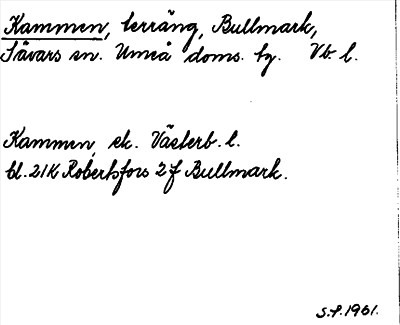 Kammen, terräng, Bullmark,
Sävars sn. Umeå doms. hg. Vb. l.
Kammen, ek. Västerb. l.
bl. 21K Robertsfors 2f Bullmark.
S.F. 1961.